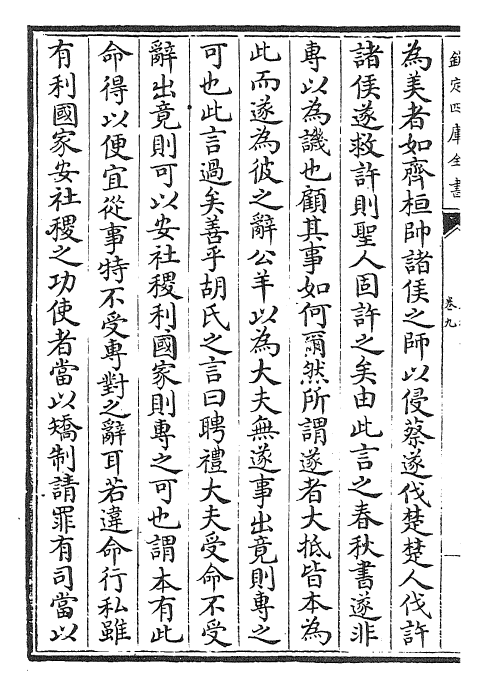 欽定四庫全書
卷九
為美者如齊桓帥諸侯之師以侵蔡遂伐楚楚人伐許
諸侯遂救許則聖人固許之矣由此言之春秋書遂非
專以為譏也顧其事如何爾然所謂遂者大抵皆本為
此而遂為彼之辭公羊以為大夫無遂事出竟則專之
可也此言過矣善乎胡氏之言曰聘禮大夫受命不受
辭出竟則可以安社稷利國家則專之可也謂本有此
命得以便宜從事特不受專對之辭耳若違命行私雖
有利國家安社稷之功使者當以矯制請罪有司當以